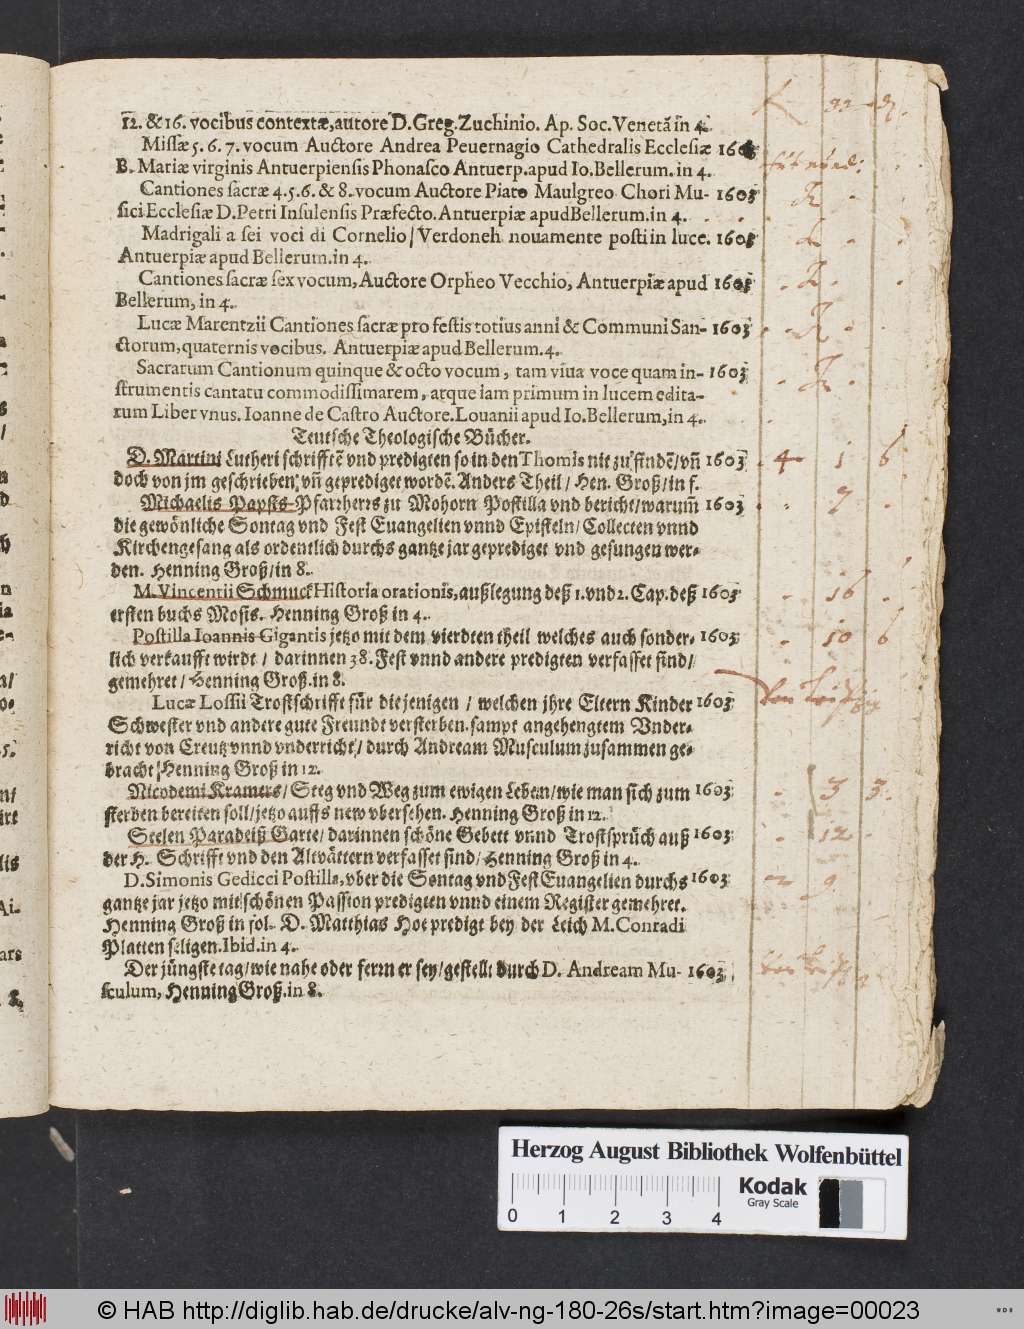 12. & 16. vocibus contextæ, autore D. Greg. Zuchinio. Ap. Soc. Venetã in 4.
Missæ 5. 6. 7. vocum Auctore Andrea Peuernagio Cathedralis Ecclesiæ
B. Mariæ virginis Antuerpiensis Phonasco Antuerp. apud Io. Bellerum. in 4.
Cantiones sacræ 4. 5. 6. & 8. vocum Auctore Piato Maulgreo Chori Mu- 1603
sici Ecclesiæ D. Petri Insulensis Præfecto. Antuerpiæ apud Bellerum. in 4.
Madrigali a sei voci di Cornelio / Verdoneh nouamente posti in luce. 1603
Antuerpiæ apud Bellerum. in 4.
Cantiones sacræ sex vocum, Auctore Orpheo Vecchio, Antuerpiæ apud 1603
Bellerum, in 4.
Lucæ Marentzii Cantiones sacræ pro festis totius anni & Communi San- 1603
ctorum, quaternis vocibus. Antuerpiæ apud Bellerum. 4.
Sacratum Cantionum quinque & octo vocum, tam viua voce quam in- 1603
strumentis cantatu commodissimarem, atque iam primum in lucem edita-
rum Liber vnus. Ioanne de Castro Auctore. Louanii apud Io. Bellerum, in 4.
Teutsche Theologische Bücher.
D. Martini Lutheri schrifftẽ vnd predigten so in den Thomis nit zu findẽ / vñ 1603
doch von jm geschrieben, vñ geprediget wordẽ. Anders Theil / Hen. Groß / in f.
Michaelis Papsts Pfarrherrs zu Mohorn Postilla vnd bericht / warum̃ 1603
die gewönliche Sontag vnd Fest Euangelien vnnd Episteln / Collecten vnnd
Kirchengesang als ordentlich durchs gantze jar geprediget vnd gesungen wer-
den. Henning Groß / in 8.
M. Vincentii Schmuck Historia orationis, außlegung deß 1. vnd 2. Cap. deß 1603
ersten buchs Mosis. Henning Groß in 4.
Postilla Ioannis Gigantis jetzo mit dem vierdten theil welches auch sonder- 1603
lich verkaufft wirdt / darinnen 38. Fest vnnd andere predigten verfasset sind /
gemehret / Henning Groß. in 8.
Lucæ Lossii Trostschrifft für die jenigen / welchen jhre Eltern Kinder 1603
Schwester vnd andere gute Freundt versterben. sampt angehengtem Vnder-
richt von Creutz vnnd vnderricht / durch Andream Musculum zusammen ge-
bracht / Henning Groß in 12.
Nicodemi Kramers / Steg vnd Weg zum ewigen Leben / wie man sich zum 1603
sterben bereiten soll / jetzo auffs new vbersehen. Henning Groß in 12.
Seelen Paradeiß Garte / darinnen schöne Gebett vnnd Trostsprüch auß 1603
der H. Schrifft vnd den Altvättern verfasset sind / Henning Groß in 4.
D. Simonis Gedicci Postilla, vber die Sontag vnd Fest Euangelien durchs 1603
gantze jar jetzo mit schönen Passion predigten vnnd einem Register gemehret.
Henning Groß in fol. D. Matthias Hoe predigt bey der Leich M. Conradi
Platten seligen. Ibid. in 4.
Der jüngste tag / wie nahe oder ferrn er sey / gestellt durch D. Andream Mu- 1603
sculum, Henning Groß. in 8.
4 1 6
7
16
10 6
3 3
12
9
Herzog August Bibliothek Wolfenbüttel
0 1 2 3 4
Kodak
Gray Scale
© HAB http://diglib.hab.de/drucke/alv-ng-180-26s/start.htm?image=00023